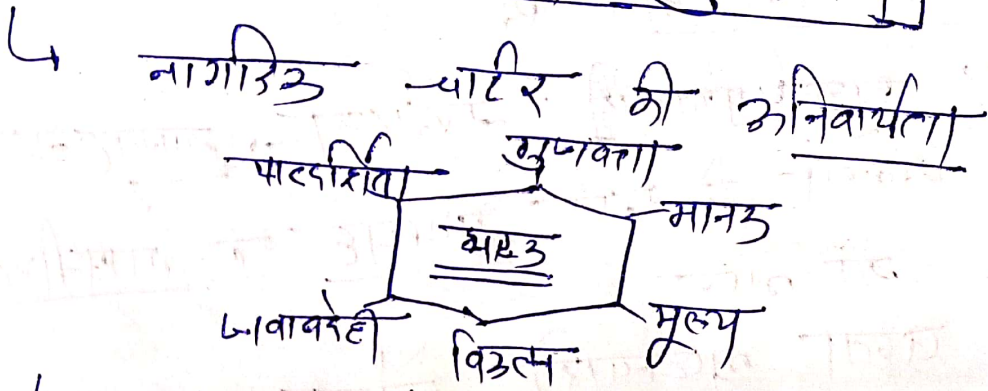 नागरिक चार्टर की अनिवार्यता
पारदर्शिता गुणवत्ता
मानक
घटक
जवाबदेही मूल्य
विकल्प